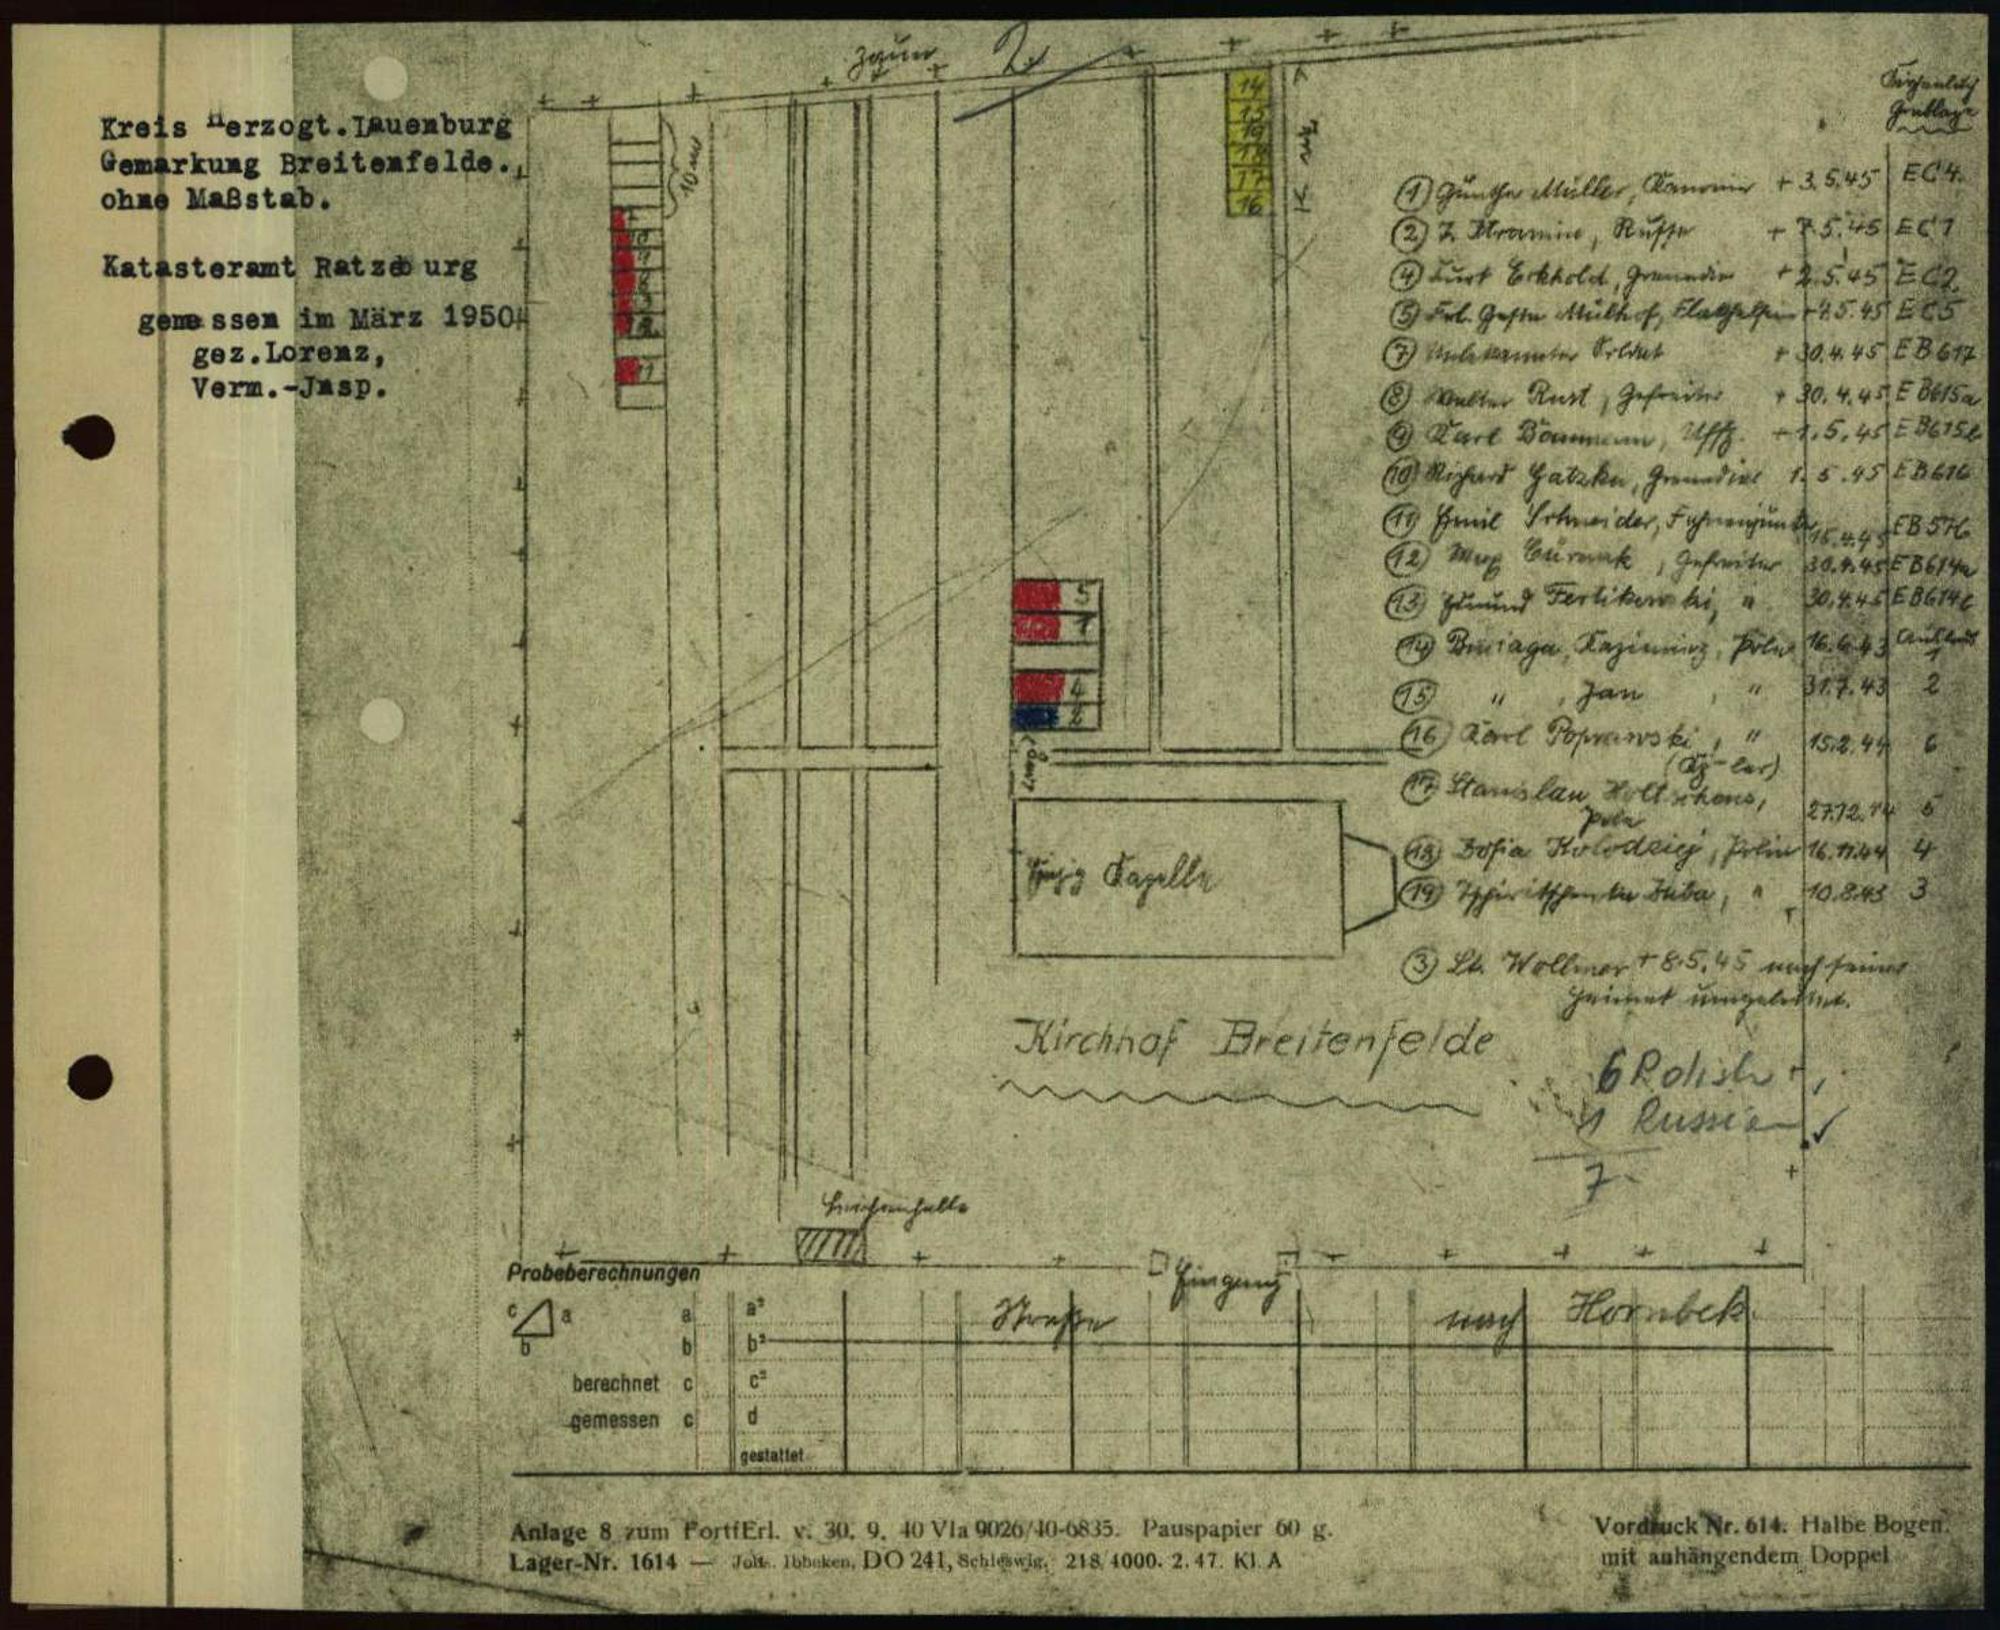 Kreis Herzogt.Lauenburg
Gemarkung Breitenfelde.,
ohne Maßstab.
Katasteramt Ratzeburg
gemessen im März 1950
gez.Lorenz,
Verm.-Jnsp.
Zaun
2
10 m
10
11
5
1
4
2
14
15
19
18
17
16
Grablage
① Günther Müller, Kanonier + 3.5.45 EC 4.
② Russe + 7.5.45 EC 1
④ Kurt Eckhold, Grenadier + 2.5.45 EC 2
⑤ Frl. + 4.5.45 EC 5
⑦ Unbekannter Soldat + 30.4.45 EB 617
⑧ Walter Rust, Gefreiter + 30.4.45 EB615a
⑨ Karl Baumann, Uffz. + 1.5.45 EB615b
⑩ Richard Gatzka, Grenadier 1.5.45 EB616
⑪ Emil Schneider, Fahnenjunker 15.4.45 EB 576
⑫ Max, Gefreiter 30.4.45 EB614a
⑬ Edmund Fertikowski, " 30.4.45 EB614b
⑭ Kazimierz, Pole 16.6.43 1
⑮ " , Jan , " 31.7.43 2
⑯ Karl Poprawski, " 15.2.44 6
⑰ Stanislau
Pole 27.12.44 5
⑱ Sofia Kolodziej, Polin 16.11.44 4
⑲ Luba, " 10.8.43 3
③ Lt. Wollmer + 8.5.45 nach seiner
Heimat umgebettet.
Kapelle
Kirchhof Breitenfelde
6 Polish
1 Russian ✓
7
Leichenhalle
Eingang
Straße nach Hornbek
Probeberechnungen
c a b
a a²
b b²
berechnet c c²
gemessen c d
gestattet
Anlage 8 zum FortfErl. v. 30. 9. 40 VIa 9026/40-6835. Pauspapier 60 g.
Lager-Nr. 1614 — Johs. Ibbeken, DO 241, Schleswig. 218/4000. 2. 47. Kl. A
Vordruck Nr. 614. Halbe Bogen.
mit anhängendem Doppel